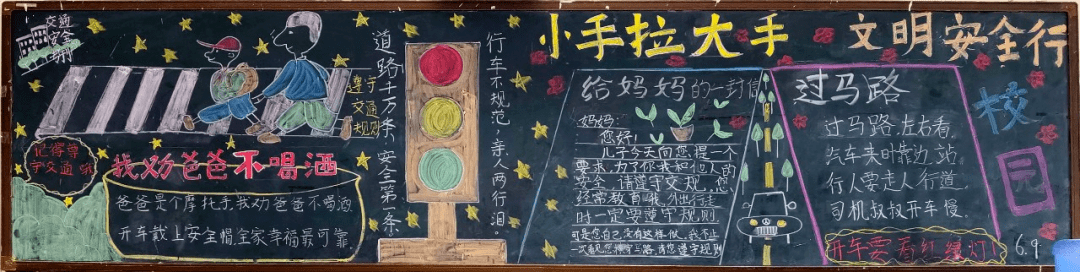 交通
安全
小手拉大手
文明安全行
校
园
道路千万条,安全第一条
行车不规范,亲人两行泪。
遵守
交通
规则
记得尊
守交通哦
我劝爸爸不喝酒
爸爸是个摩托手,我劝爸爸不喝酒
开车戴上安全帽,全家幸福最可靠
给妈妈的一封信
妈妈:
您好!
儿子今天向您提一个
要求,为了你我和他人的
安全,请遵守交规,您
经常教育哦,外出行走
时一定要遵守规则
可是您自己没有这样做,我不止
一次看见您横穿马路,请您遵守规则
过马路
过马路,左右看,
汽车来时靠边站。
行人要走人行道,
司机叔叔开车慢。
开车要看红绿灯!
6.9